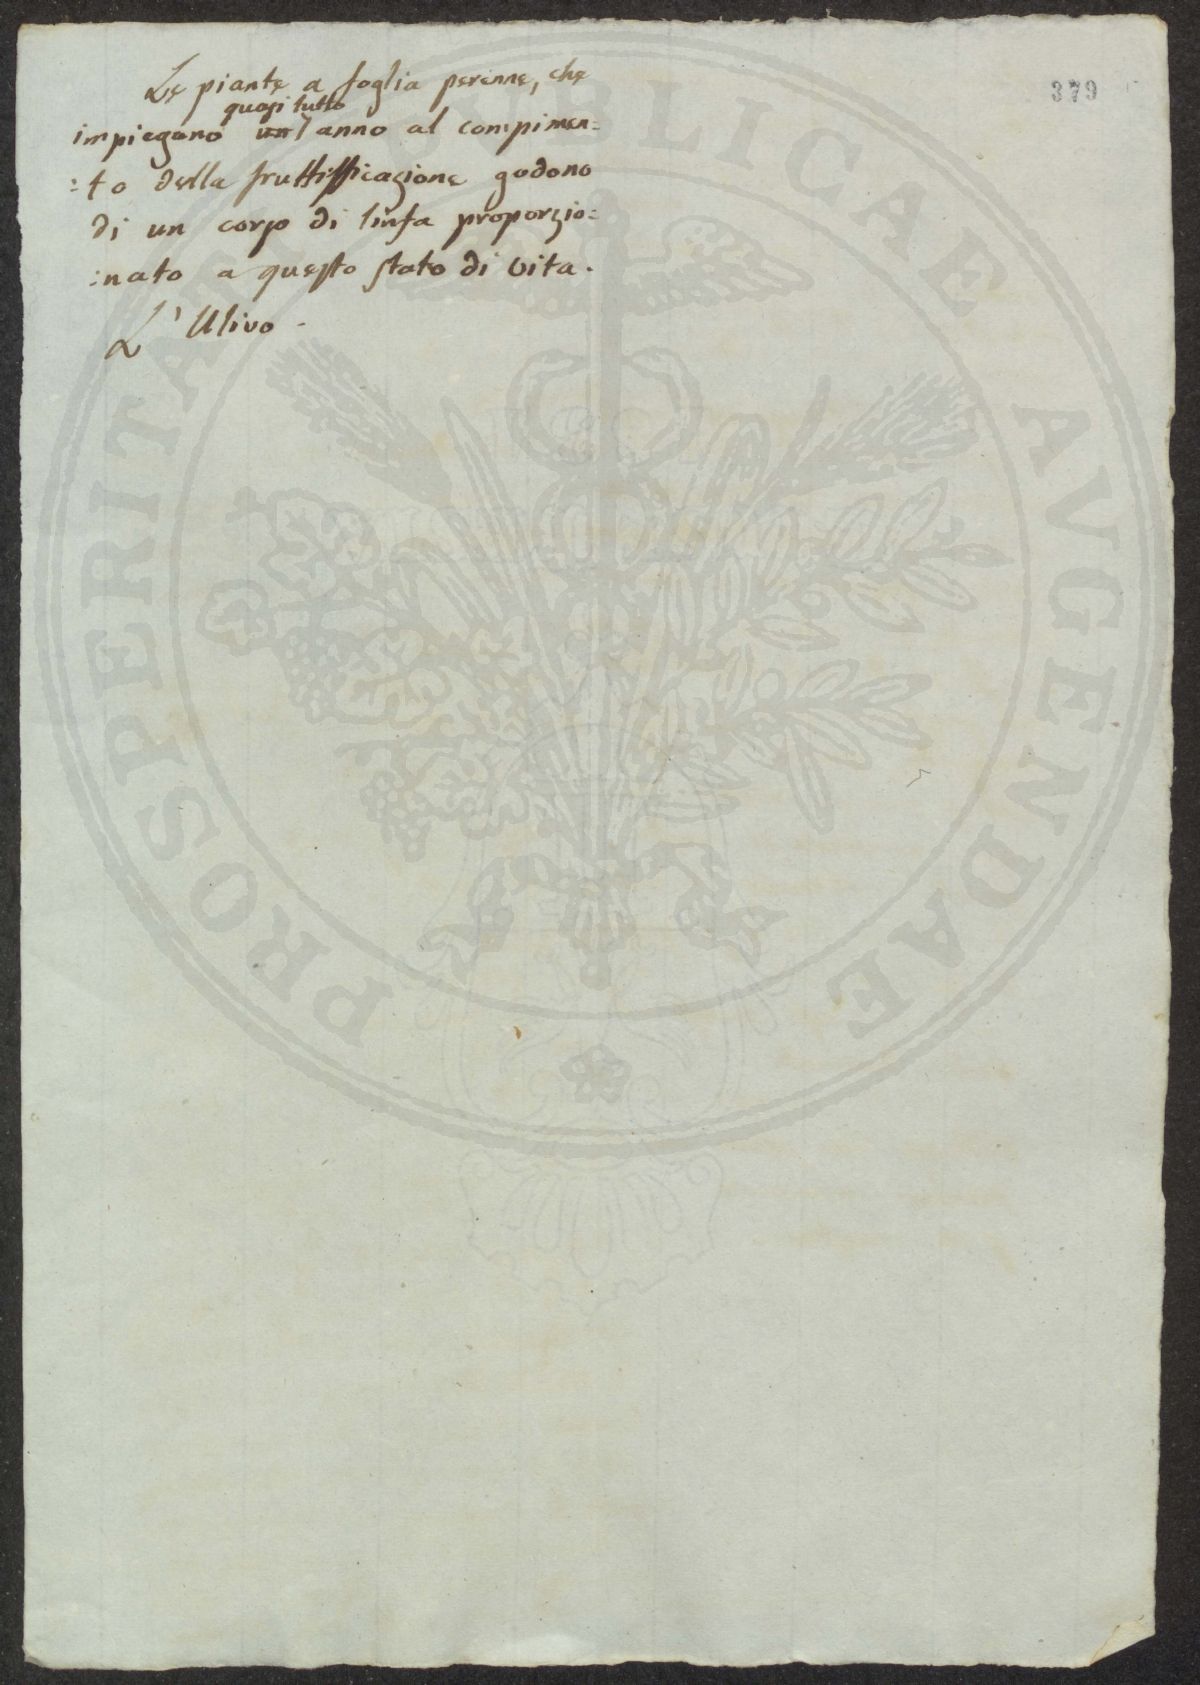 379
Le piante a foglia perenne, che
quasi tutto
impiegano un l'anno al compimen=
=to della fruttifficazione godono
di un corso di linfa proporzio=
=nato a questo stato di vita.
L' Ulivo.
PROSPERITATI PUBLICAE AVGENDAE